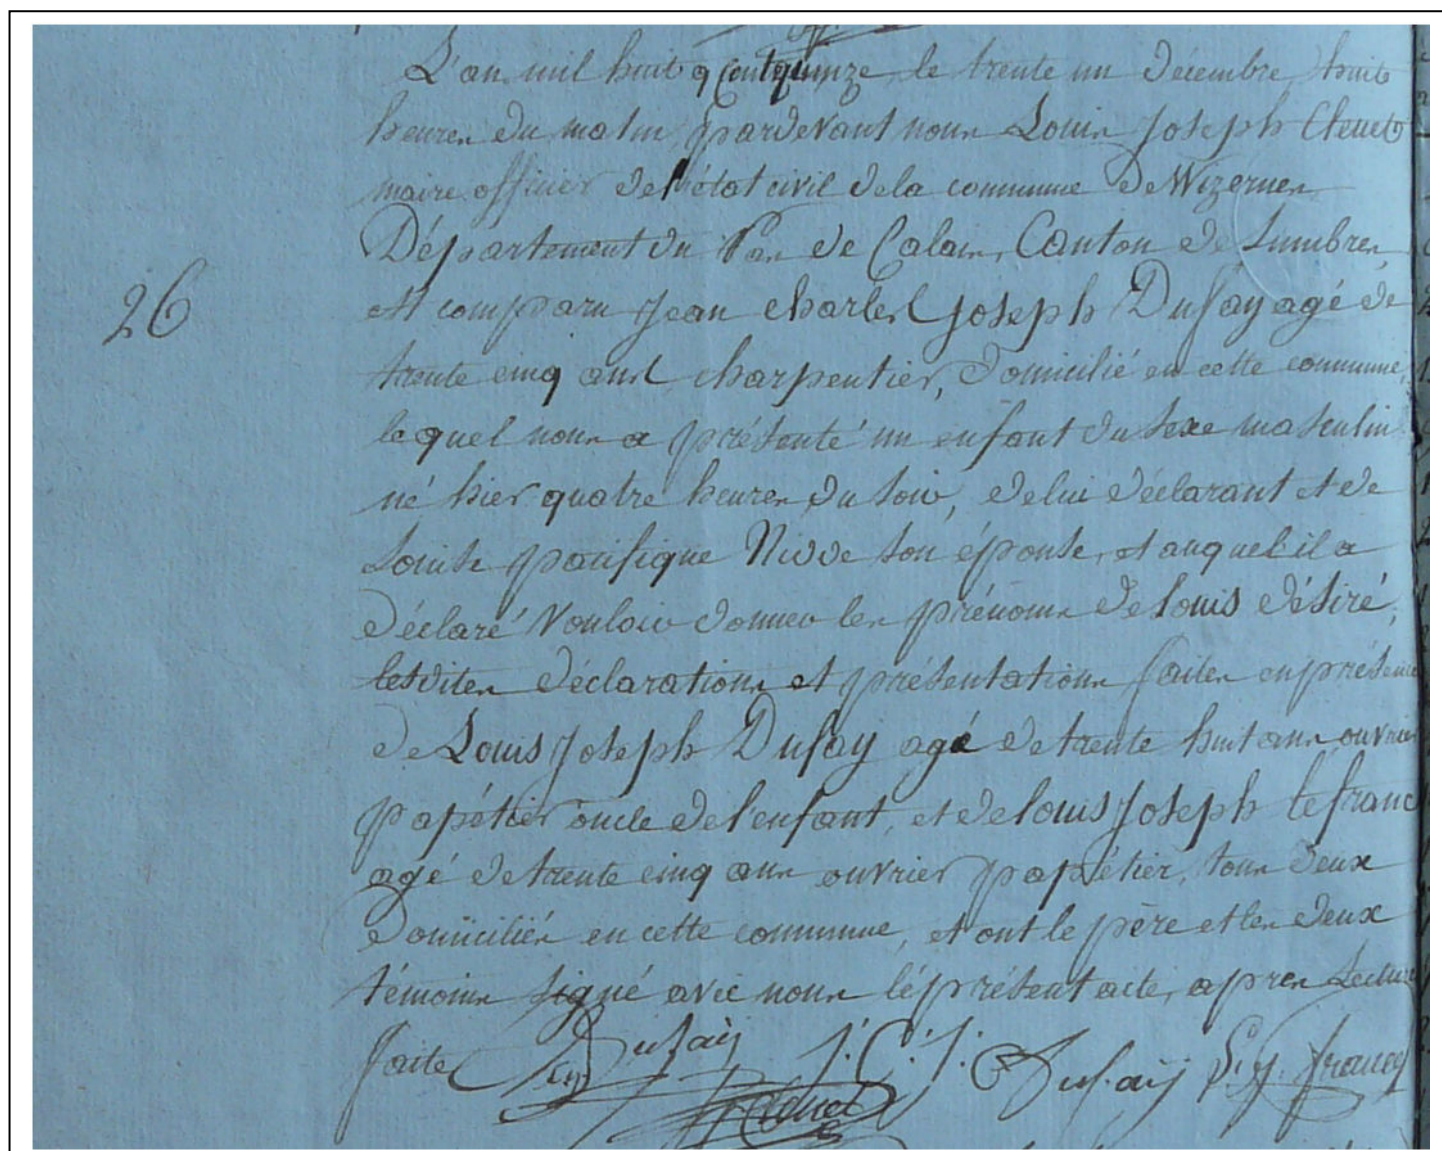 L'an mil huit Cent quinze le trente un Décembre, huit
heures du matin, pardevant nous Louis Joseph Cleuet
maire officier de l'état civil de la commune de Wizernes
Département du Pas de Calais, Canton de Lumbres,
26
est comparu Jean Charles Joseph Dufay agé de
trente cinq ans charpentier, Domicilié en cette commune,
lequel nous a présenté un enfant du sexe masculin
né hier quatre heures du soir, de lui déclarant et de
Louise pacifique Nivve son épouse, et auquel il a
Déclaré Vouloir donner les prénoms de Louis désiré,
lesdites déclarations et présentations faites en présence
de Louis Joseph Dufay agé de trente huit ans, ouvrier
papétier oncle de l'enfant, et de louis Joseph lefranc
agé de trente cinq ans ouvrier papétier, tous deux
Domicilié en cette commune, et ont le père et les deux
témoins signé avec nous lé présent acte, apres Lecture
faite Dufaÿ J. C. J. Dufaÿ francq
Cleuet